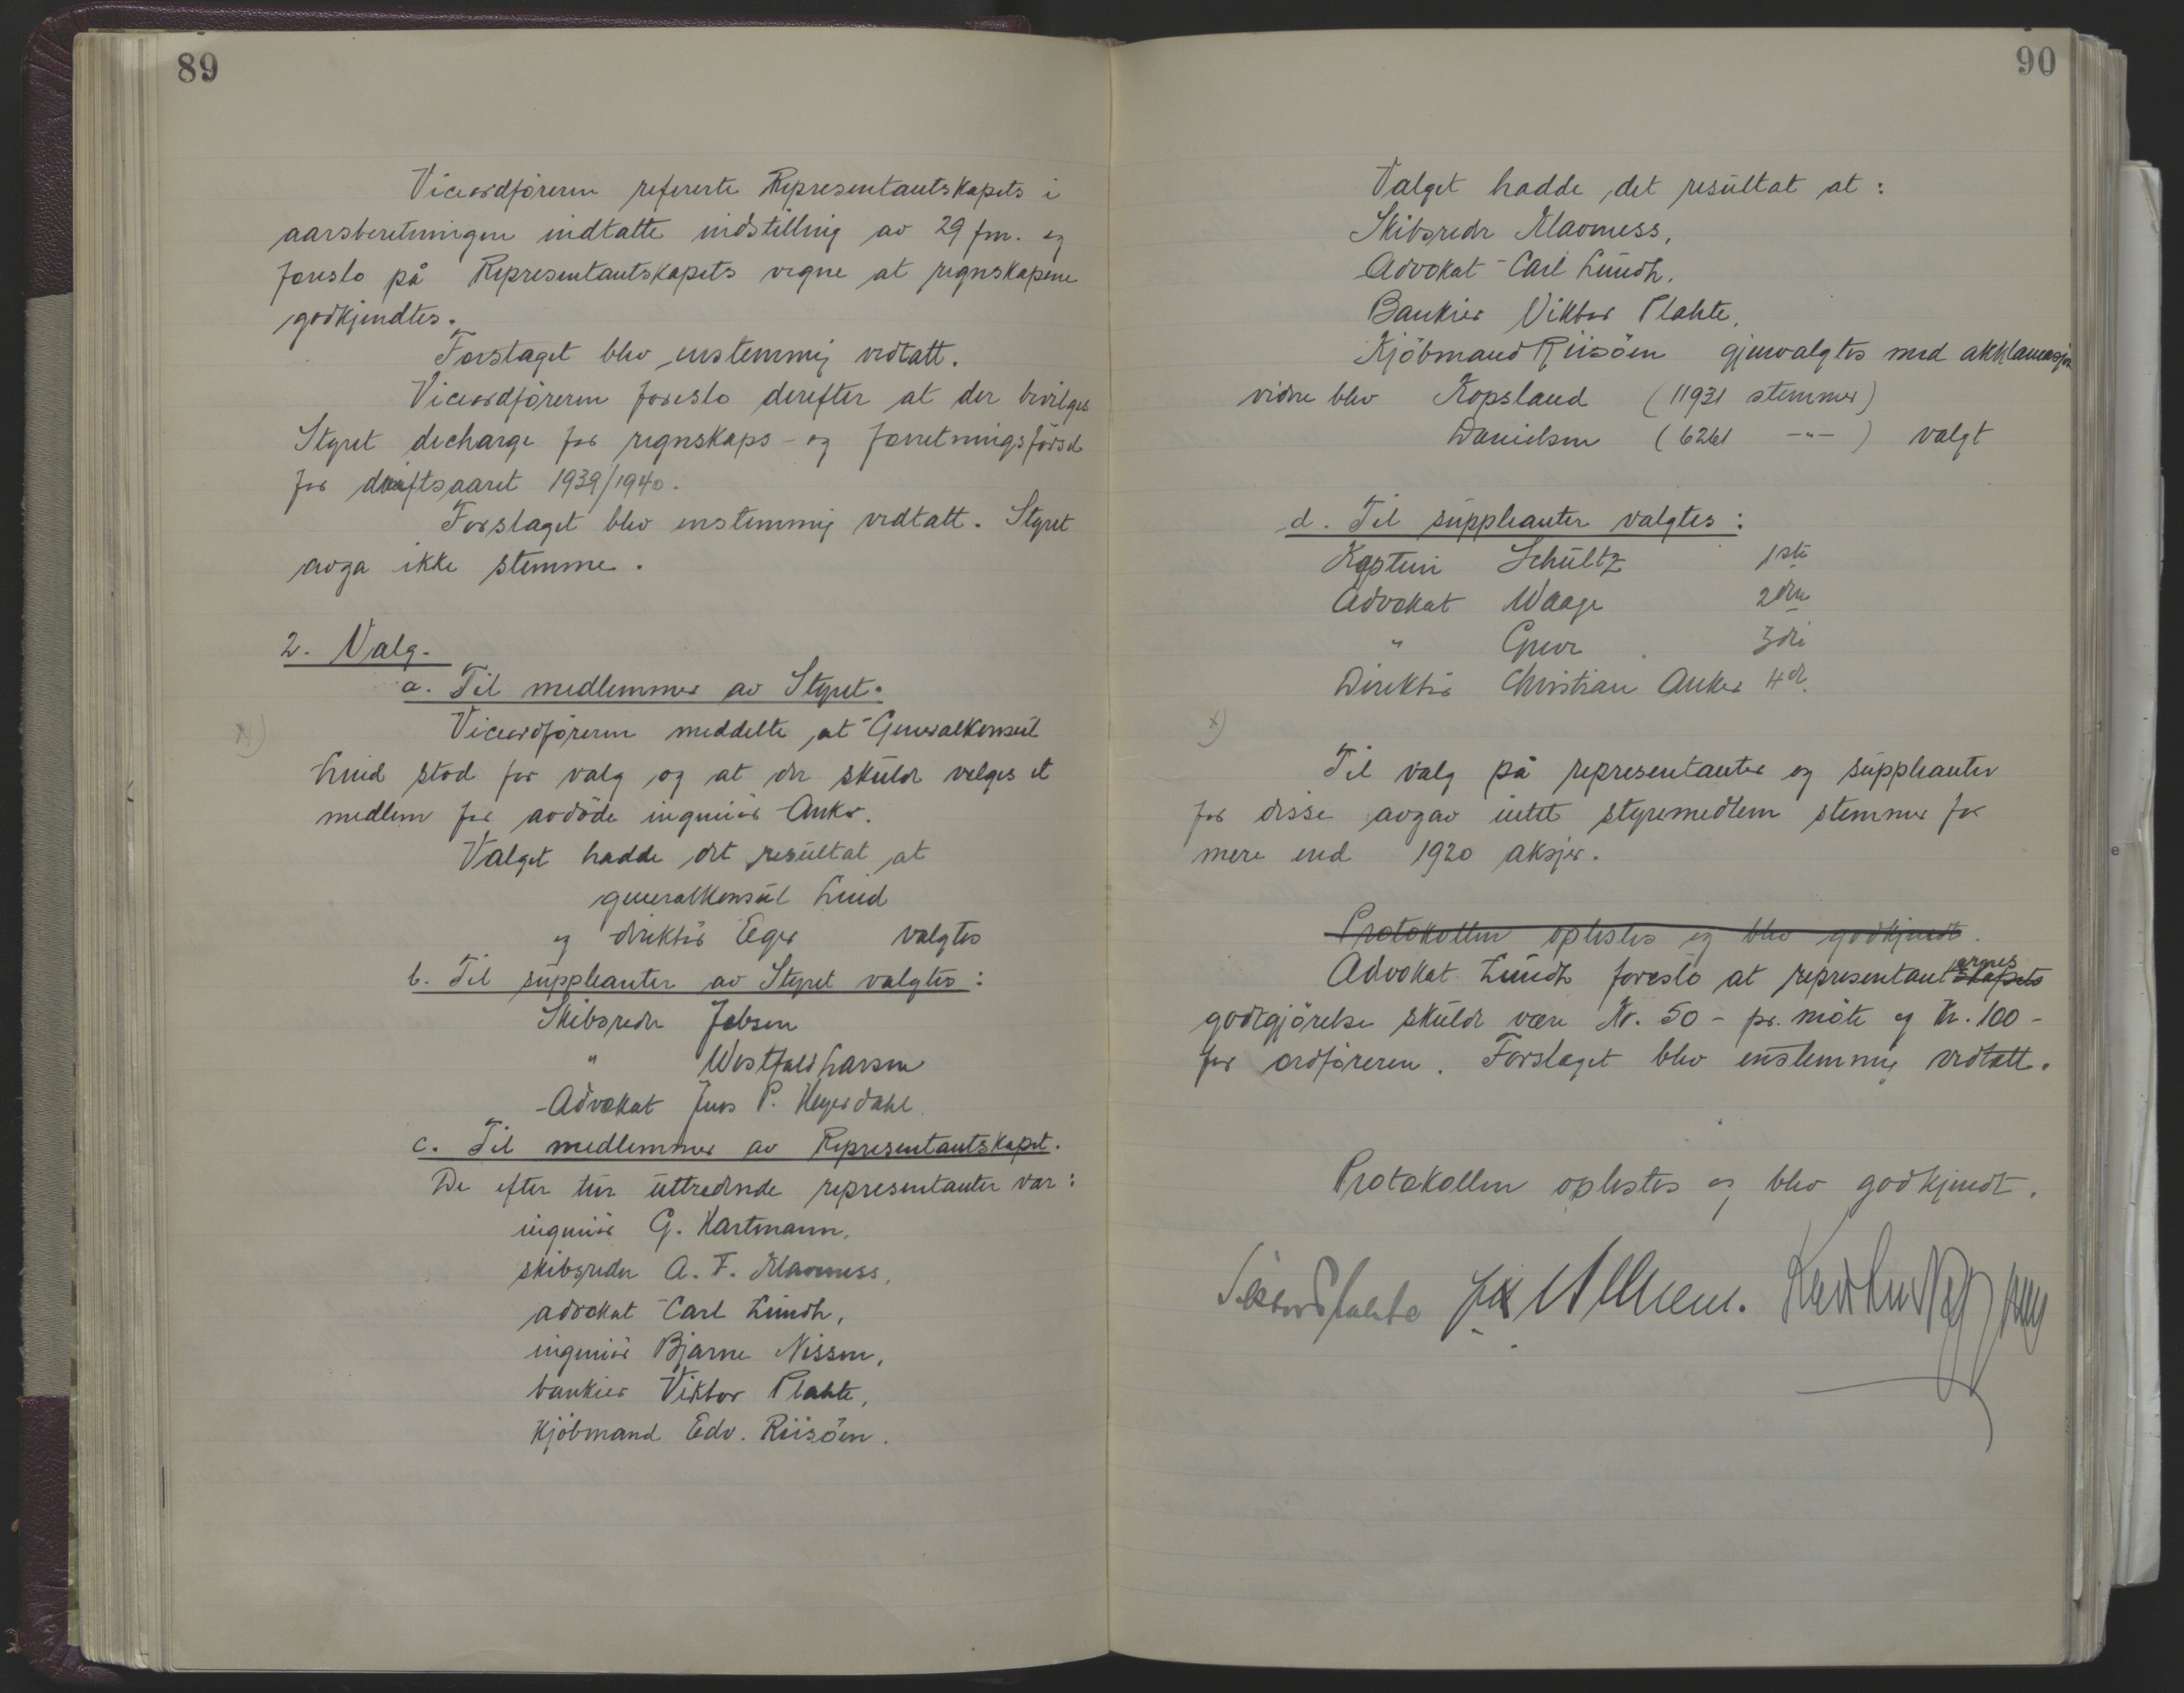 89
Viceordföreren refererte Representantskapets i
aarsberetningen indtatte indstilling av 29 fm. og
foreslo på Representantskapets vegne at regnskapene
godkjendtes.
Forslaget blev enstemmig vedtatt.
Viceordföreren foreslo derefter at der bevilges
Styret decharge for regnskaps- og forretningsförsel
for driftsaaret 1939/1940.
Forslaget blev enstemmig vedtatt. Styret
avga ikke stemme.
2. Valg.
a. Til medlemmer av Styret.
Viceordföreren meddelte, at Generalkonsul
x)
Lund stod for valg og at der skulde velges et
medlem for avdöde ingeniör Anker.
Valget hadde det resultat at
generalkonsul Lund
og direktör Eger valgtes
b. Til suppleanter av Styret valgtes:
Skibsreder Jebsen
" Westfal Larsen
Advokat Jens P. Heyerdahl
c. Til medlemmer av Representantskapet.
De efter tur uttredende representanter var:
ingeniör G. Hartmann,
skibsreder A. F. Klaveness,
advokat Carl Lundh,
ingeniör Bjarne Nissen,
bankier Viktor Plahte,
Kjöbmand Edv. Riisöen.
90
Valget hadde det resultat at:
Skibsreder Klaveness,
Advokat Carl Lundh,
Bankier Viktor Plahte,
Kjöbmand Riisöen gjenvalgtes med akklamasjon
videre blev Kopsland (11931 stemmer)
Danielsen (6261 -"-) valgt
d. Til suppleanter valgtes:
Kaptein Schultz 1ste
Advokat Waage 2den
" Greve 3die
Direktör Christian Anker 4de.
x)
Til valg på representanter og suppleanter
for disse avgav intet styremedlem stemmer for
mere end 1920 aksjer.
Protokollen oplestes og blev godkjendt.
Advokat Lundh foreslo at representantskapets ernes
godtgjörelse skulde være Kr. 50- pr. möte og Kr. 100-
for ordföreren. Forslaget blev enstemmig vedtatt.
Protokollen oplestes og blev godkjendt.